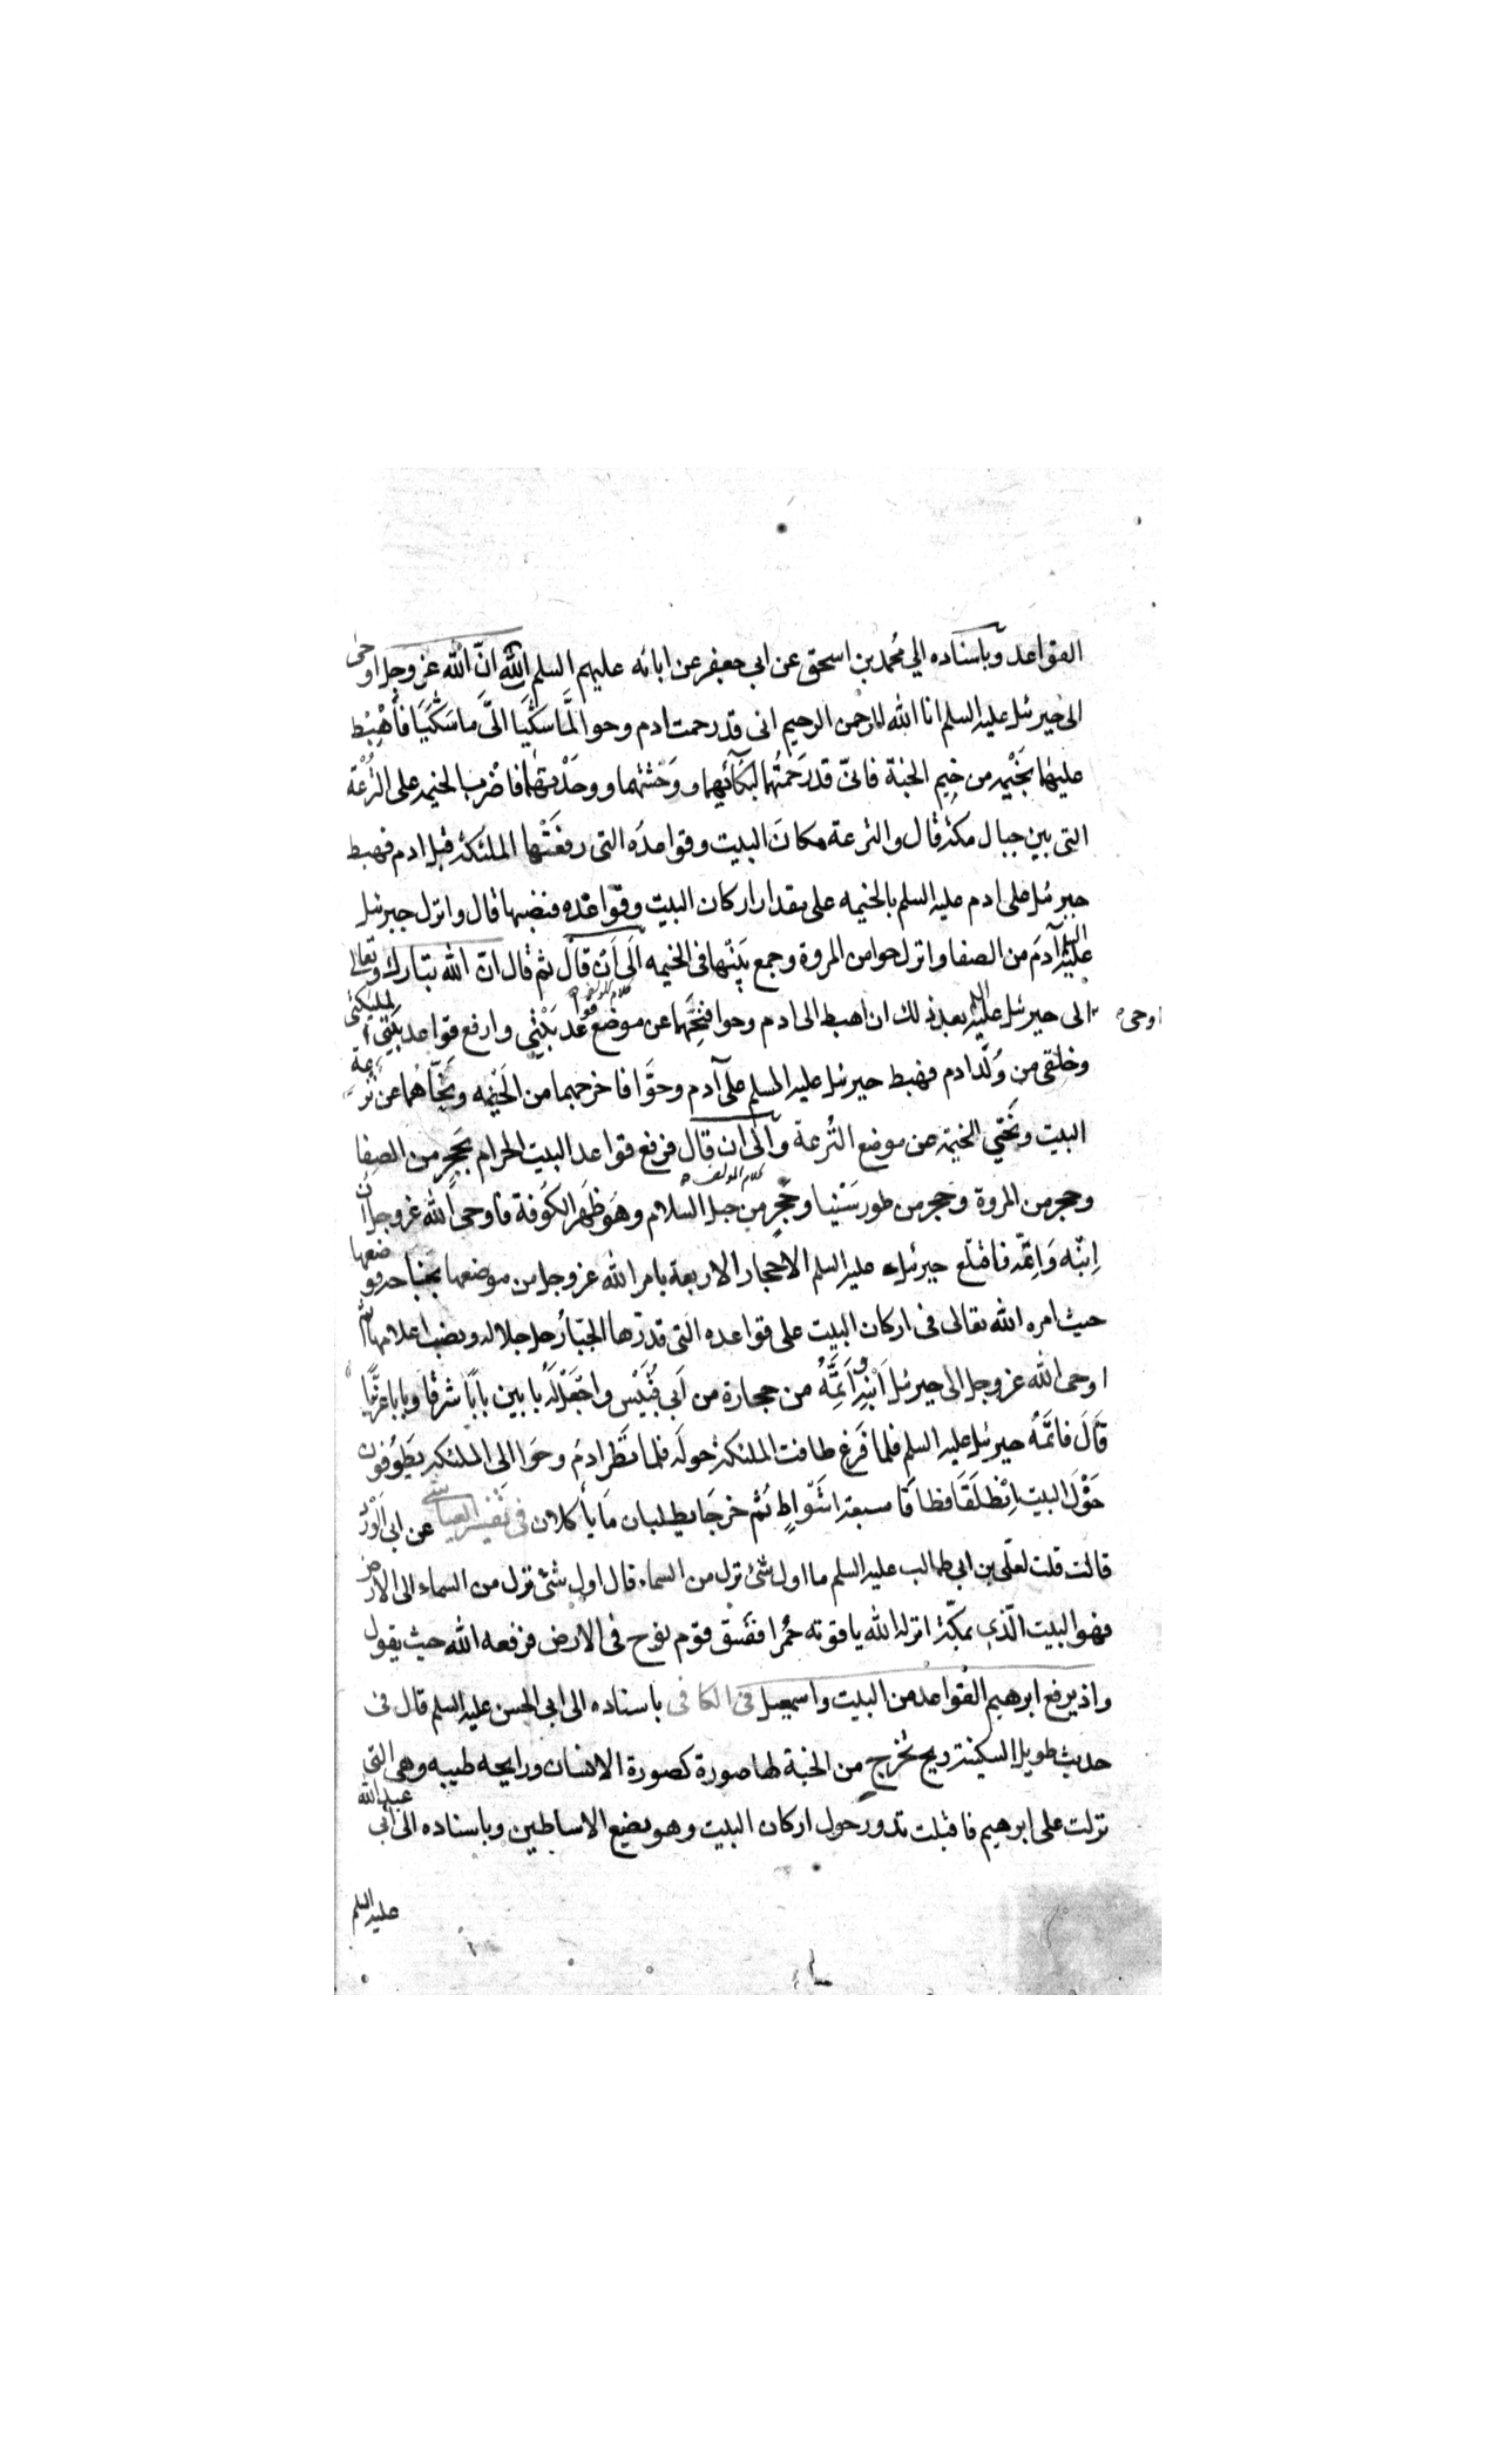 القواعد وباسناده الي محمد بن اسحق عن ابي جعفر عن ابائه عليهم السلم انّ الله عز وجل اوحى
الى جبرئيل عليه السلم انا الله الرحمن الرحيم انى قد رحمت ادم وحوا لمَّا شكيا الىَّ ما شَكَيَا فأهْبِط
عليهما بخَيْمه من خِيم الجنة فانىّ قد رَحمتُهما لبُكآئِهما ووَحْشتهما ووحْدتهما فاضْرب الخيمه على التُرْعَة
التى بين جبال مكة قال والترعة مكانَ البيت وقواعدُه التى رفعَتْها الملئكة قبل ادم فهبط
جبرئيل على ادم عليه السلم بالخيمه على مقدار اركان البيت وقواعده فنصبها قال وانزل جبرئيل
عليه السلم آدمَ من الصفا وانزل حوا من المروة وجمع بَيْنهما فى الخيمه الَى اَنْ قال ثم قال انّ الله تبارك وتعالى
كلام المؤلف
اوحى الى جبرئيل عليه السلم بعد ذلك ان اهبط الى ادم وحوا فنحِّهما عن موضع قواعد بَيْتى وارفع قواعد بيتى لمليكتى
وخلقى من وُلْد ادم فهبط جبرئيل عليه السلم على آدم وحوَّا فاخرجهما من الخَيْمه ونحّاهُما عن ترعة
البيت ونَحّي الخيمة عن موضع التُرعة والَى اَن قال فرفع قواعد البيت الحرام بحَجرٍ من الصفا
كلام المؤلف
وحجر من المروة وحجر من طور سَيْنيا وحَجرٍ من جبل السلام وهوَ ظَهر الكوفة فاوحى الله عز وجل ان
اِبْنِه وَاتِمّه فاقتلع جبرئيل عليه السلم الاحجار الاربعة بامر الله عز وجل من موضعها بجنَاحه فوضعها
حيث امره الله تعالى فى اركان البيت على قواعده التى قدرها الجبّارُ جل جلاله ونصب اعلامها ثم
اوحى الله عز وجل الى جبرئيل اَبْنِهِ واَتِمَّهُ من حجارة من اَبى قُبَيْس واجْعَلْ لَهُ بابين بابًا شرقا وبابا غربًّيا
قَالَ فاتَمَّهُ جبرئيل عليه السلم فلما فَرَغ طافت الملئكة حولَه فلما نَظَر ادمُ وحَوا الى الملئكه يَطوُفون
حَوْلَ البيت اِنْطلَقَا فطافَا سبعة اشَوْاطٍ ثم خرجَا يطلبان مَا يأكلان فى تفسير العياشى عن ابى الورْد
قالت قلت لعلّى بن ابى طالب عليه السلم ما اول شئ نزل من السماء قال اول شئ نزل من السماء الى الارض
فهو البيت الّذى بمكّة انزله الله ياقوته حُمرا ففسق قوم نوح فى الارض فرفعه الله حيث يقول
واذ يرفع ابرهيم القواعد من البيت واسمعيل فى الكافى باسناده الى ابى الحسن عليه السلم قال فى
حديث طويل السكينة ريح تخرج من الجنة لها صورة كصورة الانسان ورايحه طيبه وهى التى
نزلت على ابرهيم فاقبلت تدور حول اركان البيت وهو يضع الاساطين وباسناده الى ابى عبد الله
عليه السلم